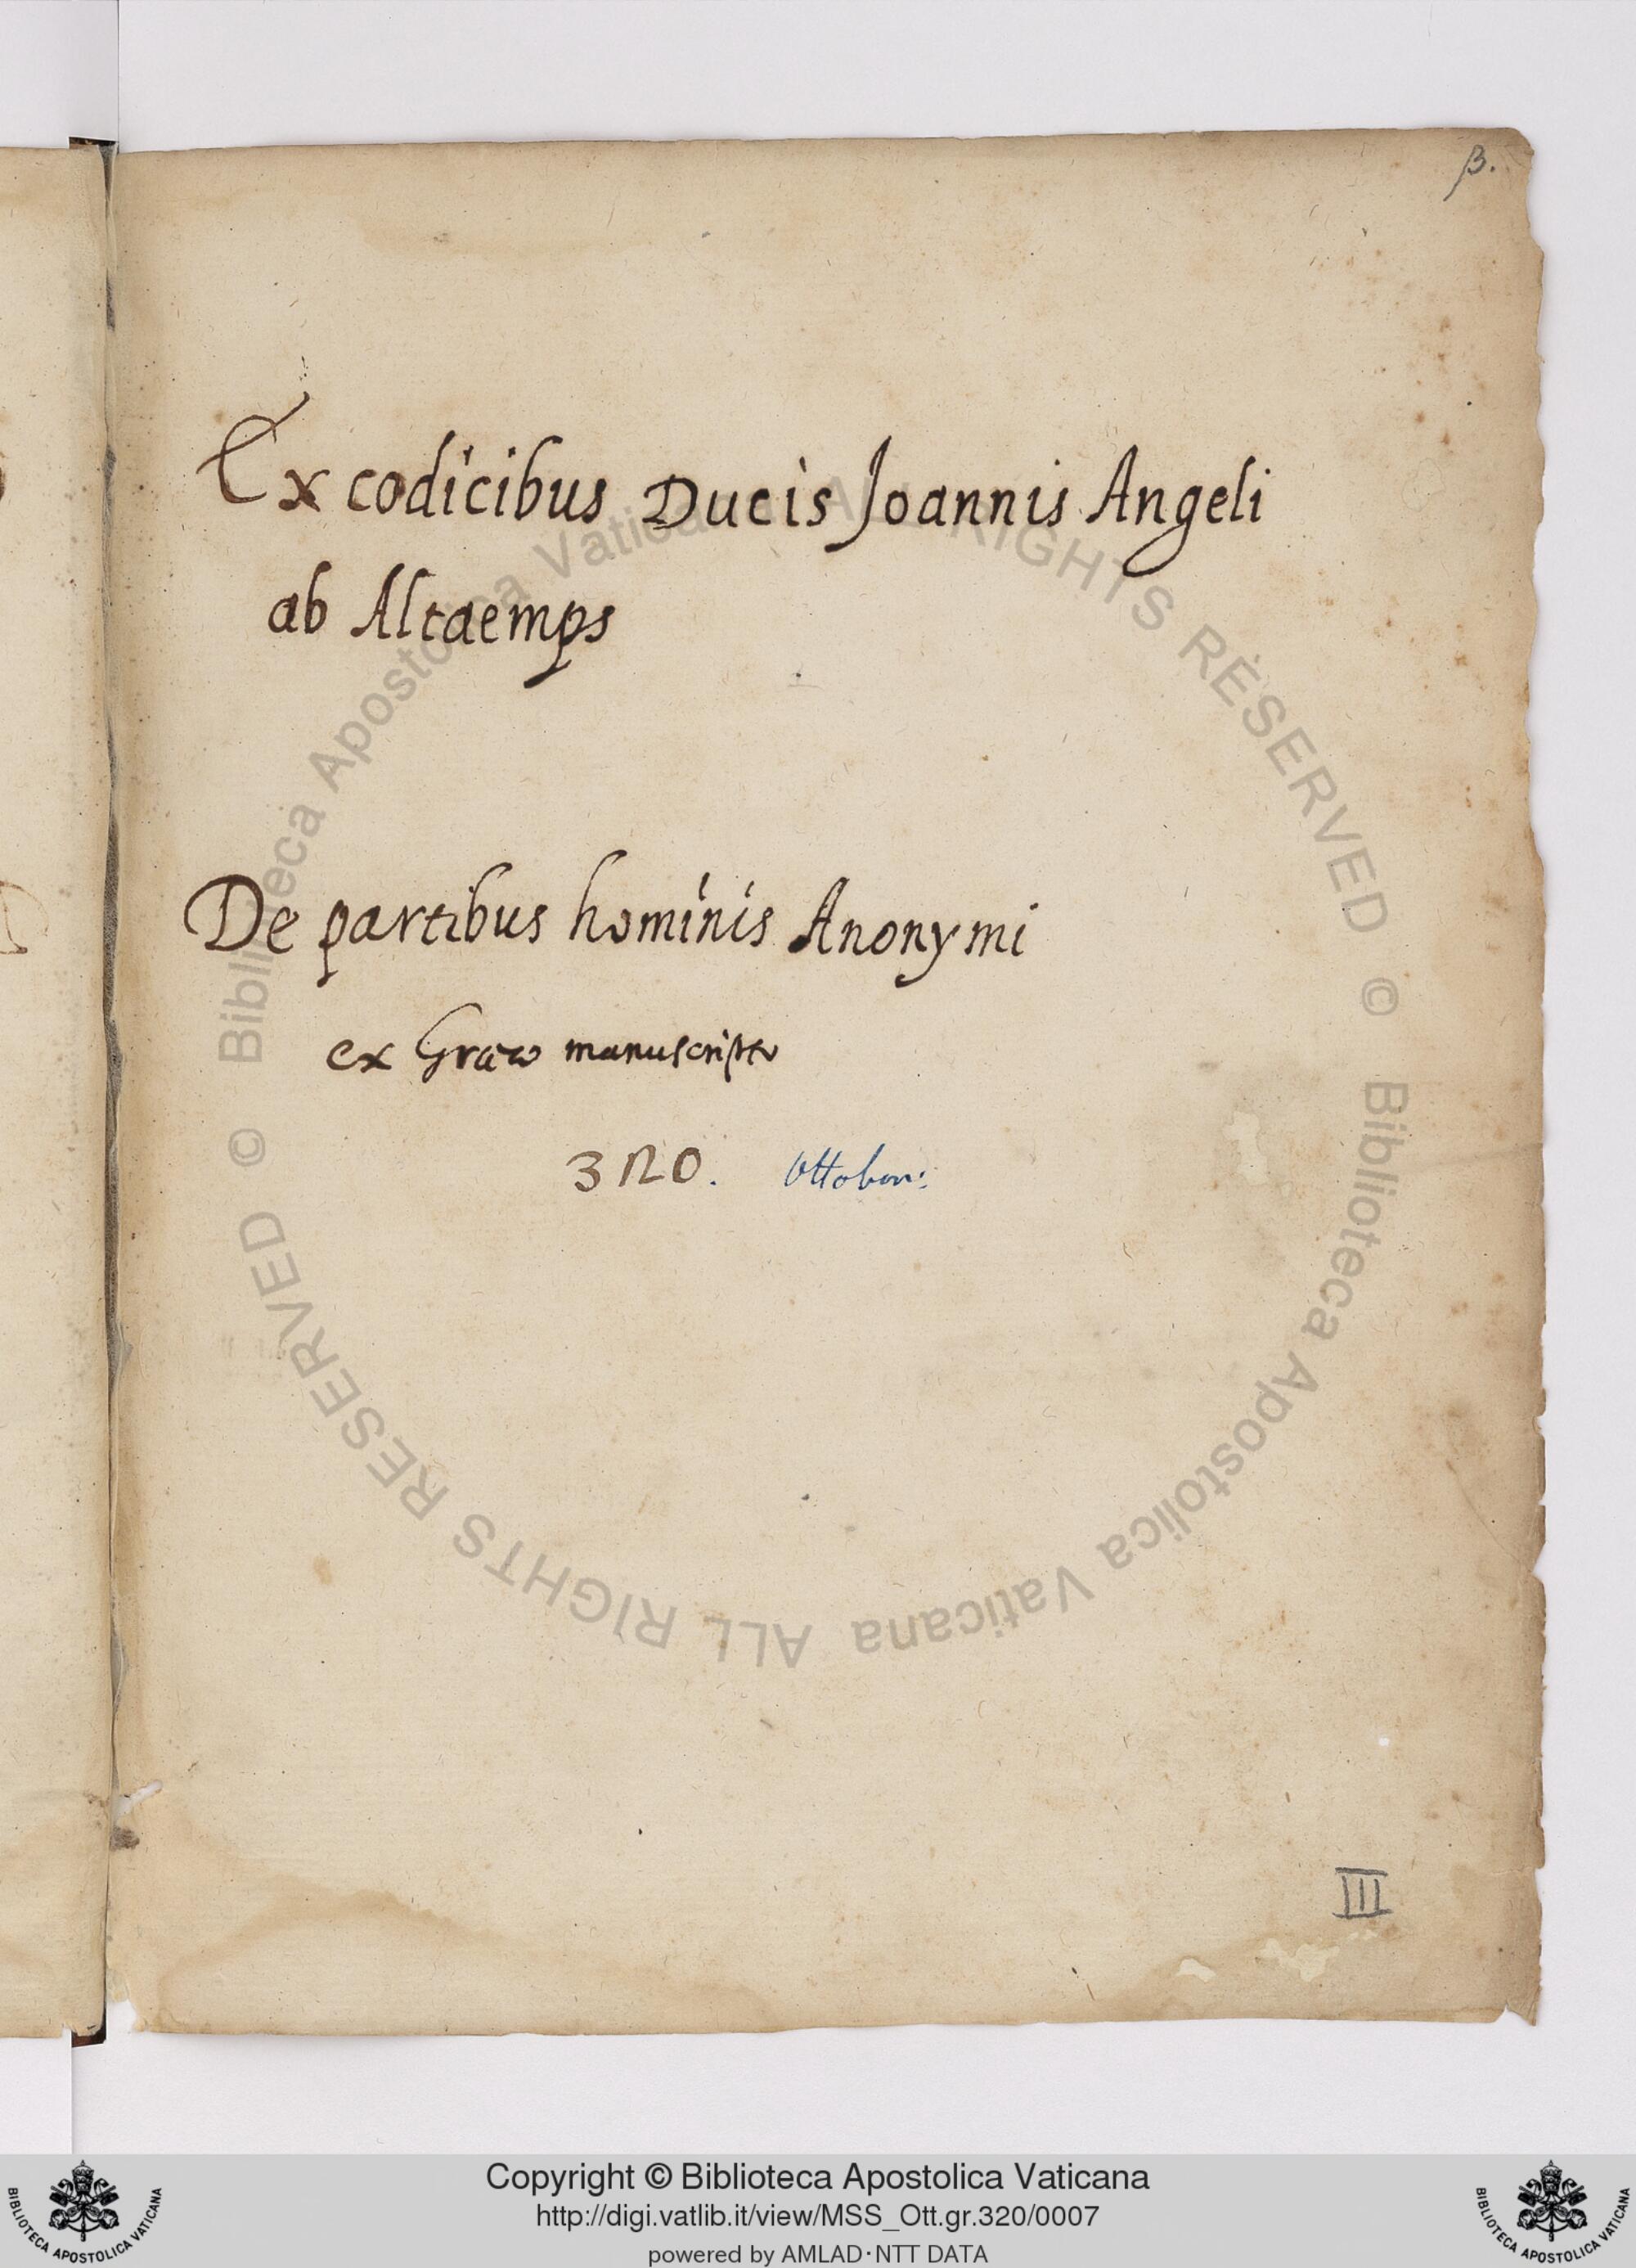 β.
Ex codicibus Ducis Joannis Angeli
ab Altaemps
De partibus hominis Anonymi
ex Græco manuscripto
320. Ottobon:
III
© Biblioteca Apostolica Vaticana ALL RIGHTS RESERVED
© Biblioteca Apostolica Vaticana ALL RIGHTS RESERVED
Copyright © Biblioteca Apostolica Vaticana
http://digi.vatlib.it/view/MSS_Ott.gr.320/0007
powered by AMLAD·NTT DATA
BIBLIOTECA APOSTOLICA VATICANA
BIBLIOTECA APOSTOLICA VATICANA